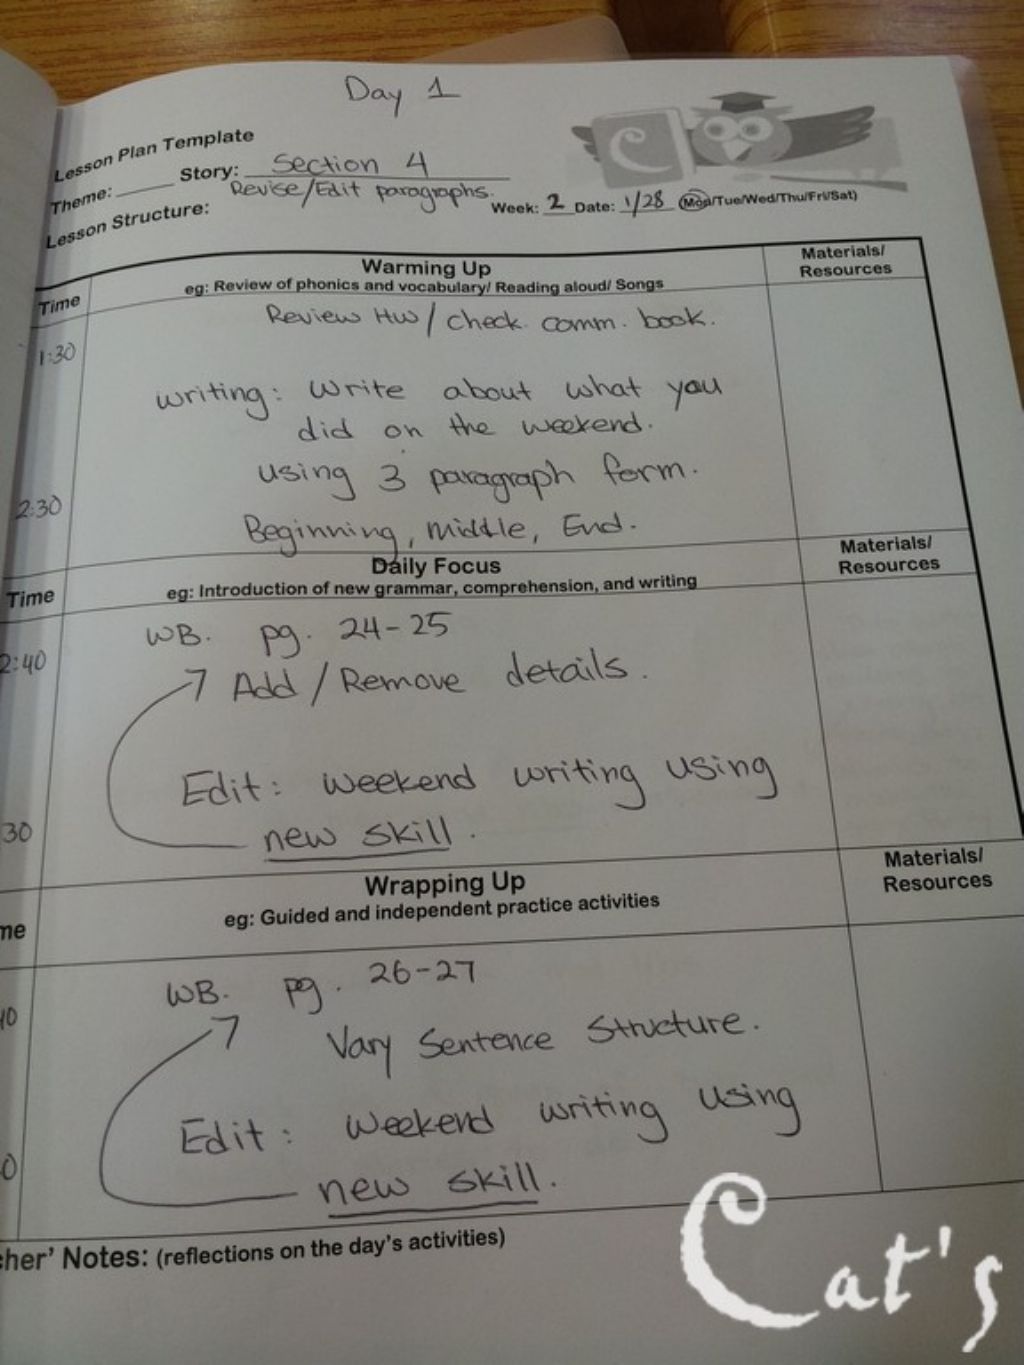 Day 1
Lesson Plan Template
Theme: ____ Story: Section 4
Revise/Edit paragraphs.
Lesson Structure:
Week: 2 Date: 1/28 (Mon/Tue/Wed/Thu/Fri/Sat)
C
Time
Warming Up
eg: Review of phonics and vocabulary/ Reading aloud/ Songs
Materials/
Resources
1:30
Review HW / check comm. book.
writing: Write about what you
did on the weekend.
using 3 paragraph form.
2:30
Beginning, middle, End.
Time
Daily Focus
eg: Introduction of new grammar, comprehension, and writing
Materials/
Resources
2:40
WB. pg. 24-25
Add / Remove details.
Edit: Weekend writing using
30
new skill.
me
Wrapping Up
eg: Guided and independent practice activities
Materials/
Resources
WB. pg. 26-27
40
Vary Sentence Structure.
Edit: Weekend writing using
0
new skill.
cher' Notes: (reflections on the day's activities)
Cat's